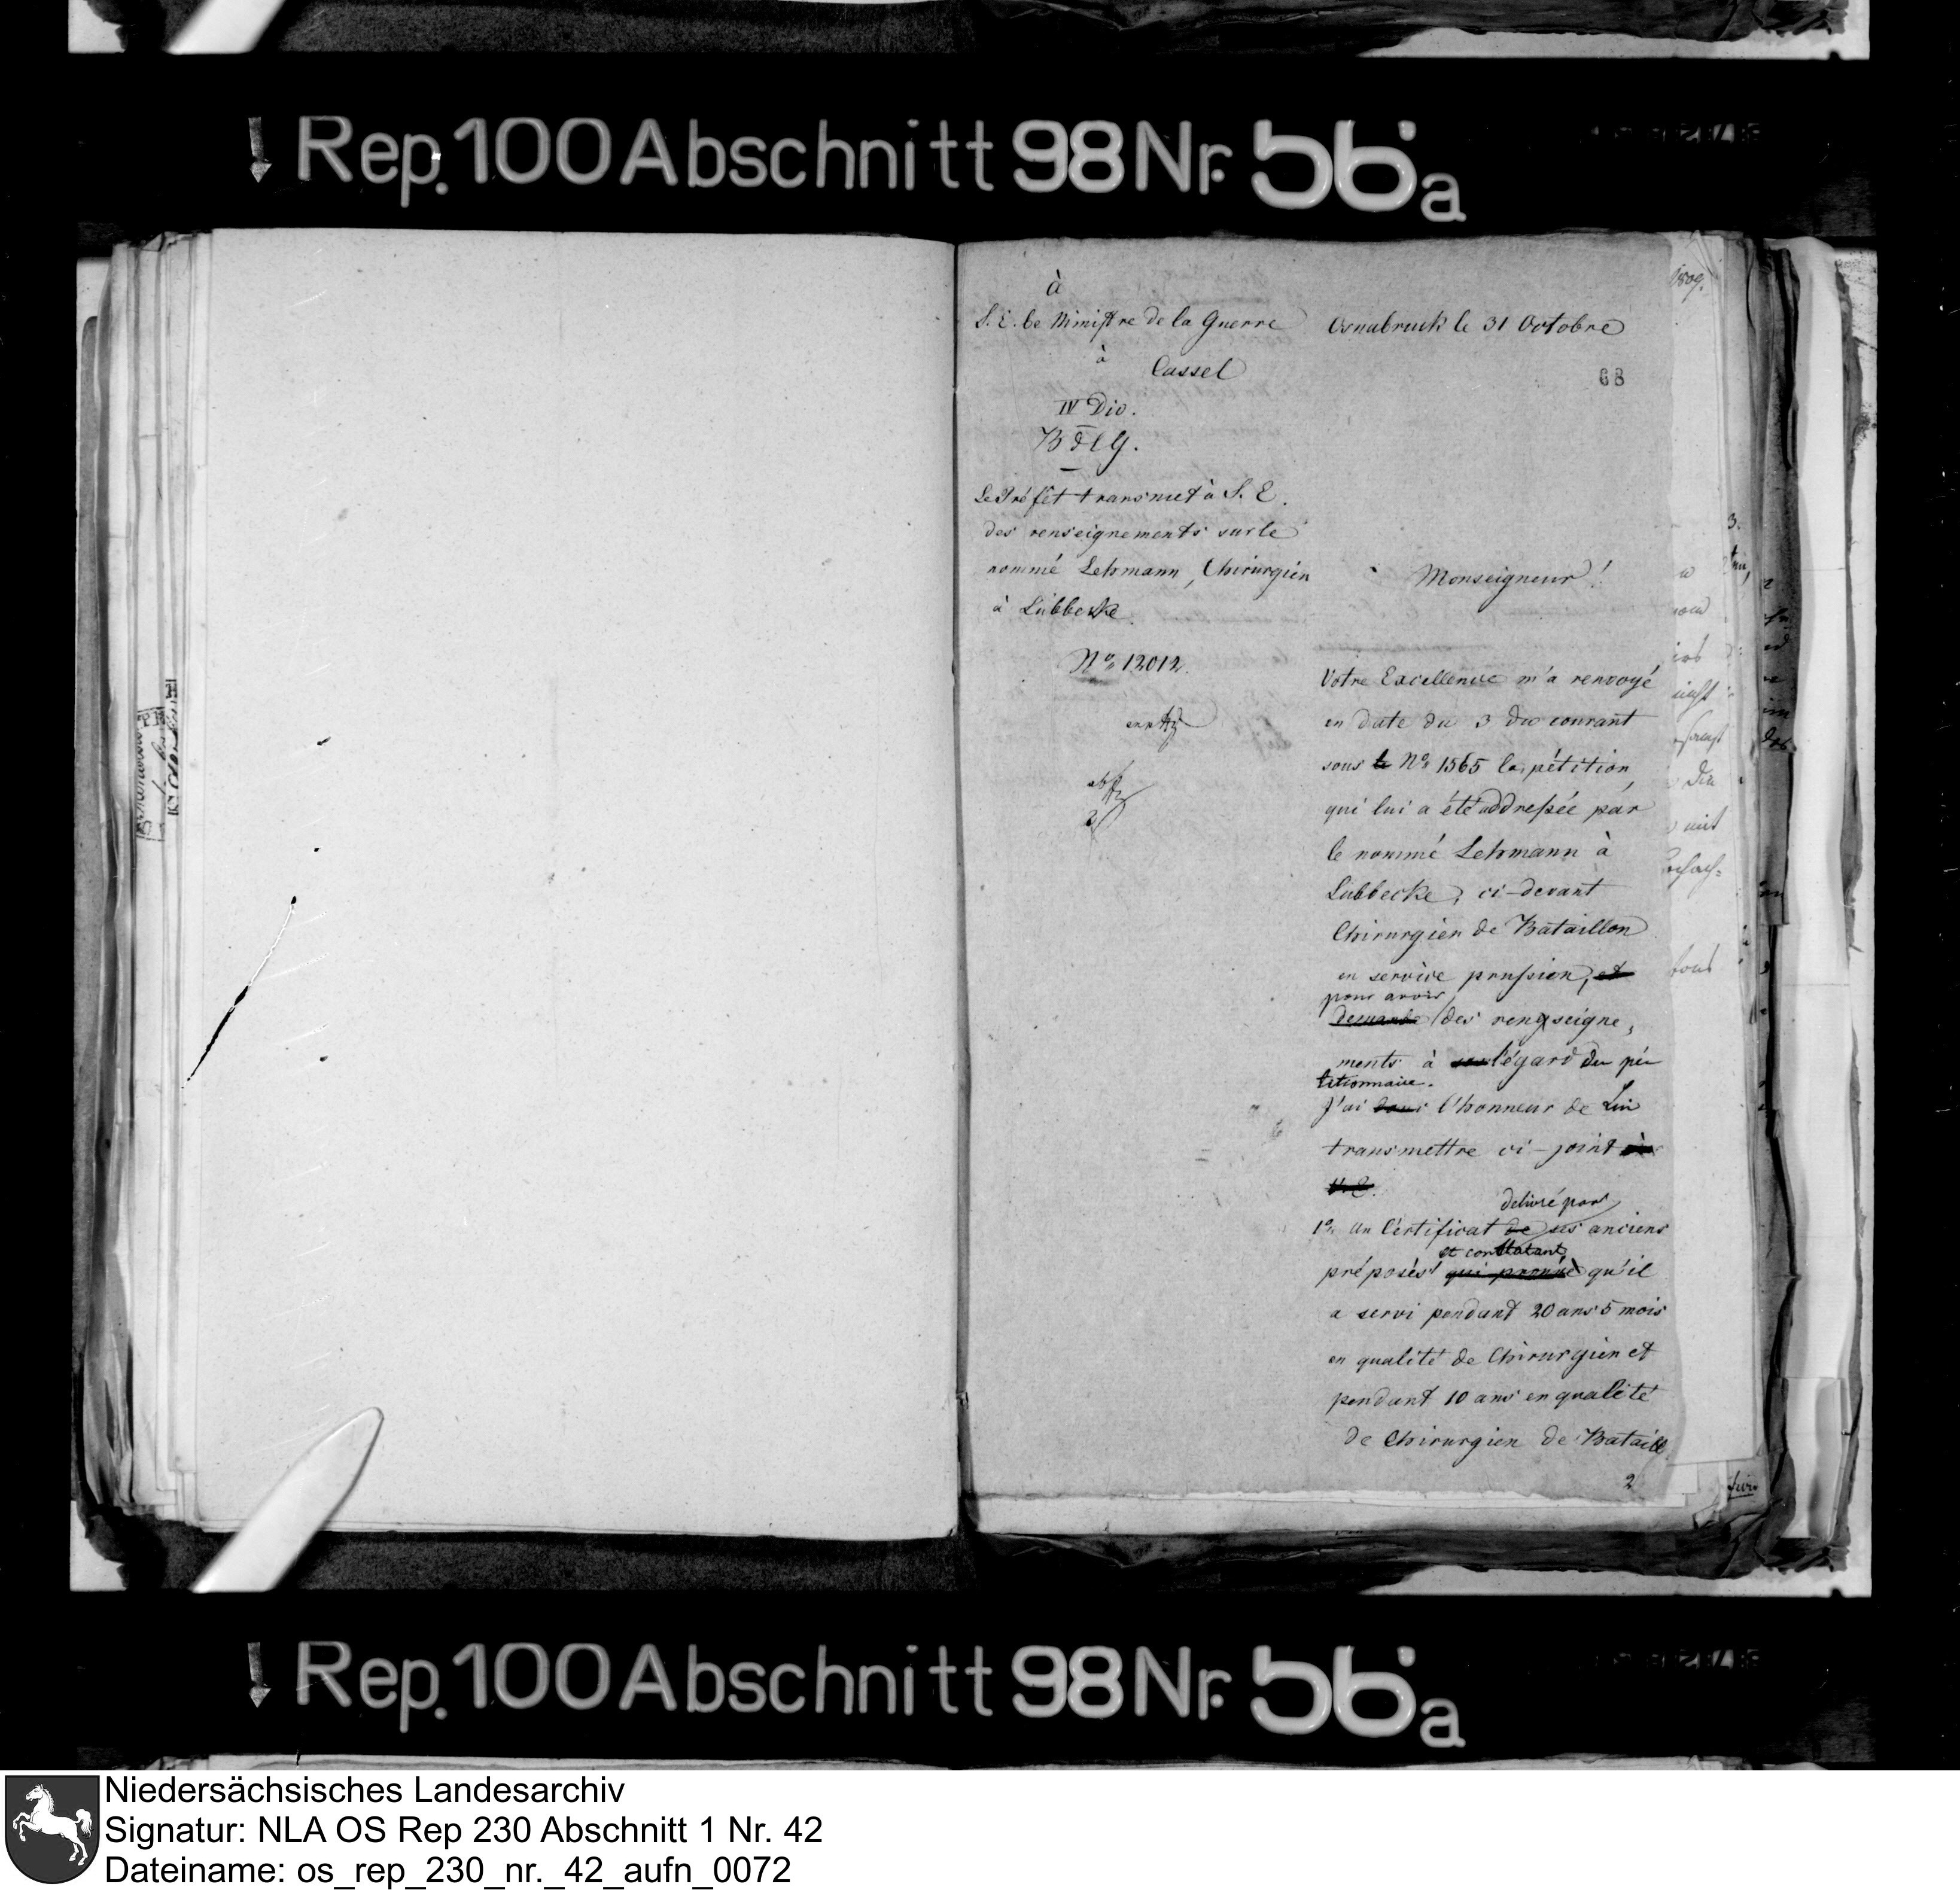 Rep. 100 Abschnitt 98 Nr. 56a
à
S. E. le Ministre de la Guerre
à
Cassel
IV Div.
B d l G.
Le Préfet transmet à S. E.
des renseignements sur le
nommé Lehmann, Chirurgien
à Lübbecke.
No. 12012.
1809.
Osnabruck le 31 Octobre
68
Monseigneur!
Votre Excellence m'a renvoyé
en date du 3 du courant
sous le No. 1565 la pétition
qui lui a été addressée par
le nommé Lehmann à
Lübbecke, ci-devant
Chirurgien de Bataillon
en service prussien, et
pour avoir
demande des rengseigne,
ments à son l'égard du pé
titionnaire.
J'ai donc l'honneur de Lui
transmettre ci-joint à
V. E.
delivré par
1o. un Certificat de ses anciens
et constatant
préposés qui prouve qu'il
a servi pendant 20 ans 5 mois
en qualité de Chirurgien et
pendant 10 ans en qualité
de Chirurgien de Bataill
2
Rep. 100 Abschnitt 98 Nr. 56a
Niedersächsisches Landesarchiv
Signatur: NLA OS Rep 230 Abschnitt 1 Nr. 42
Dateiname: os_rep_230_nr._42_aufn_0072